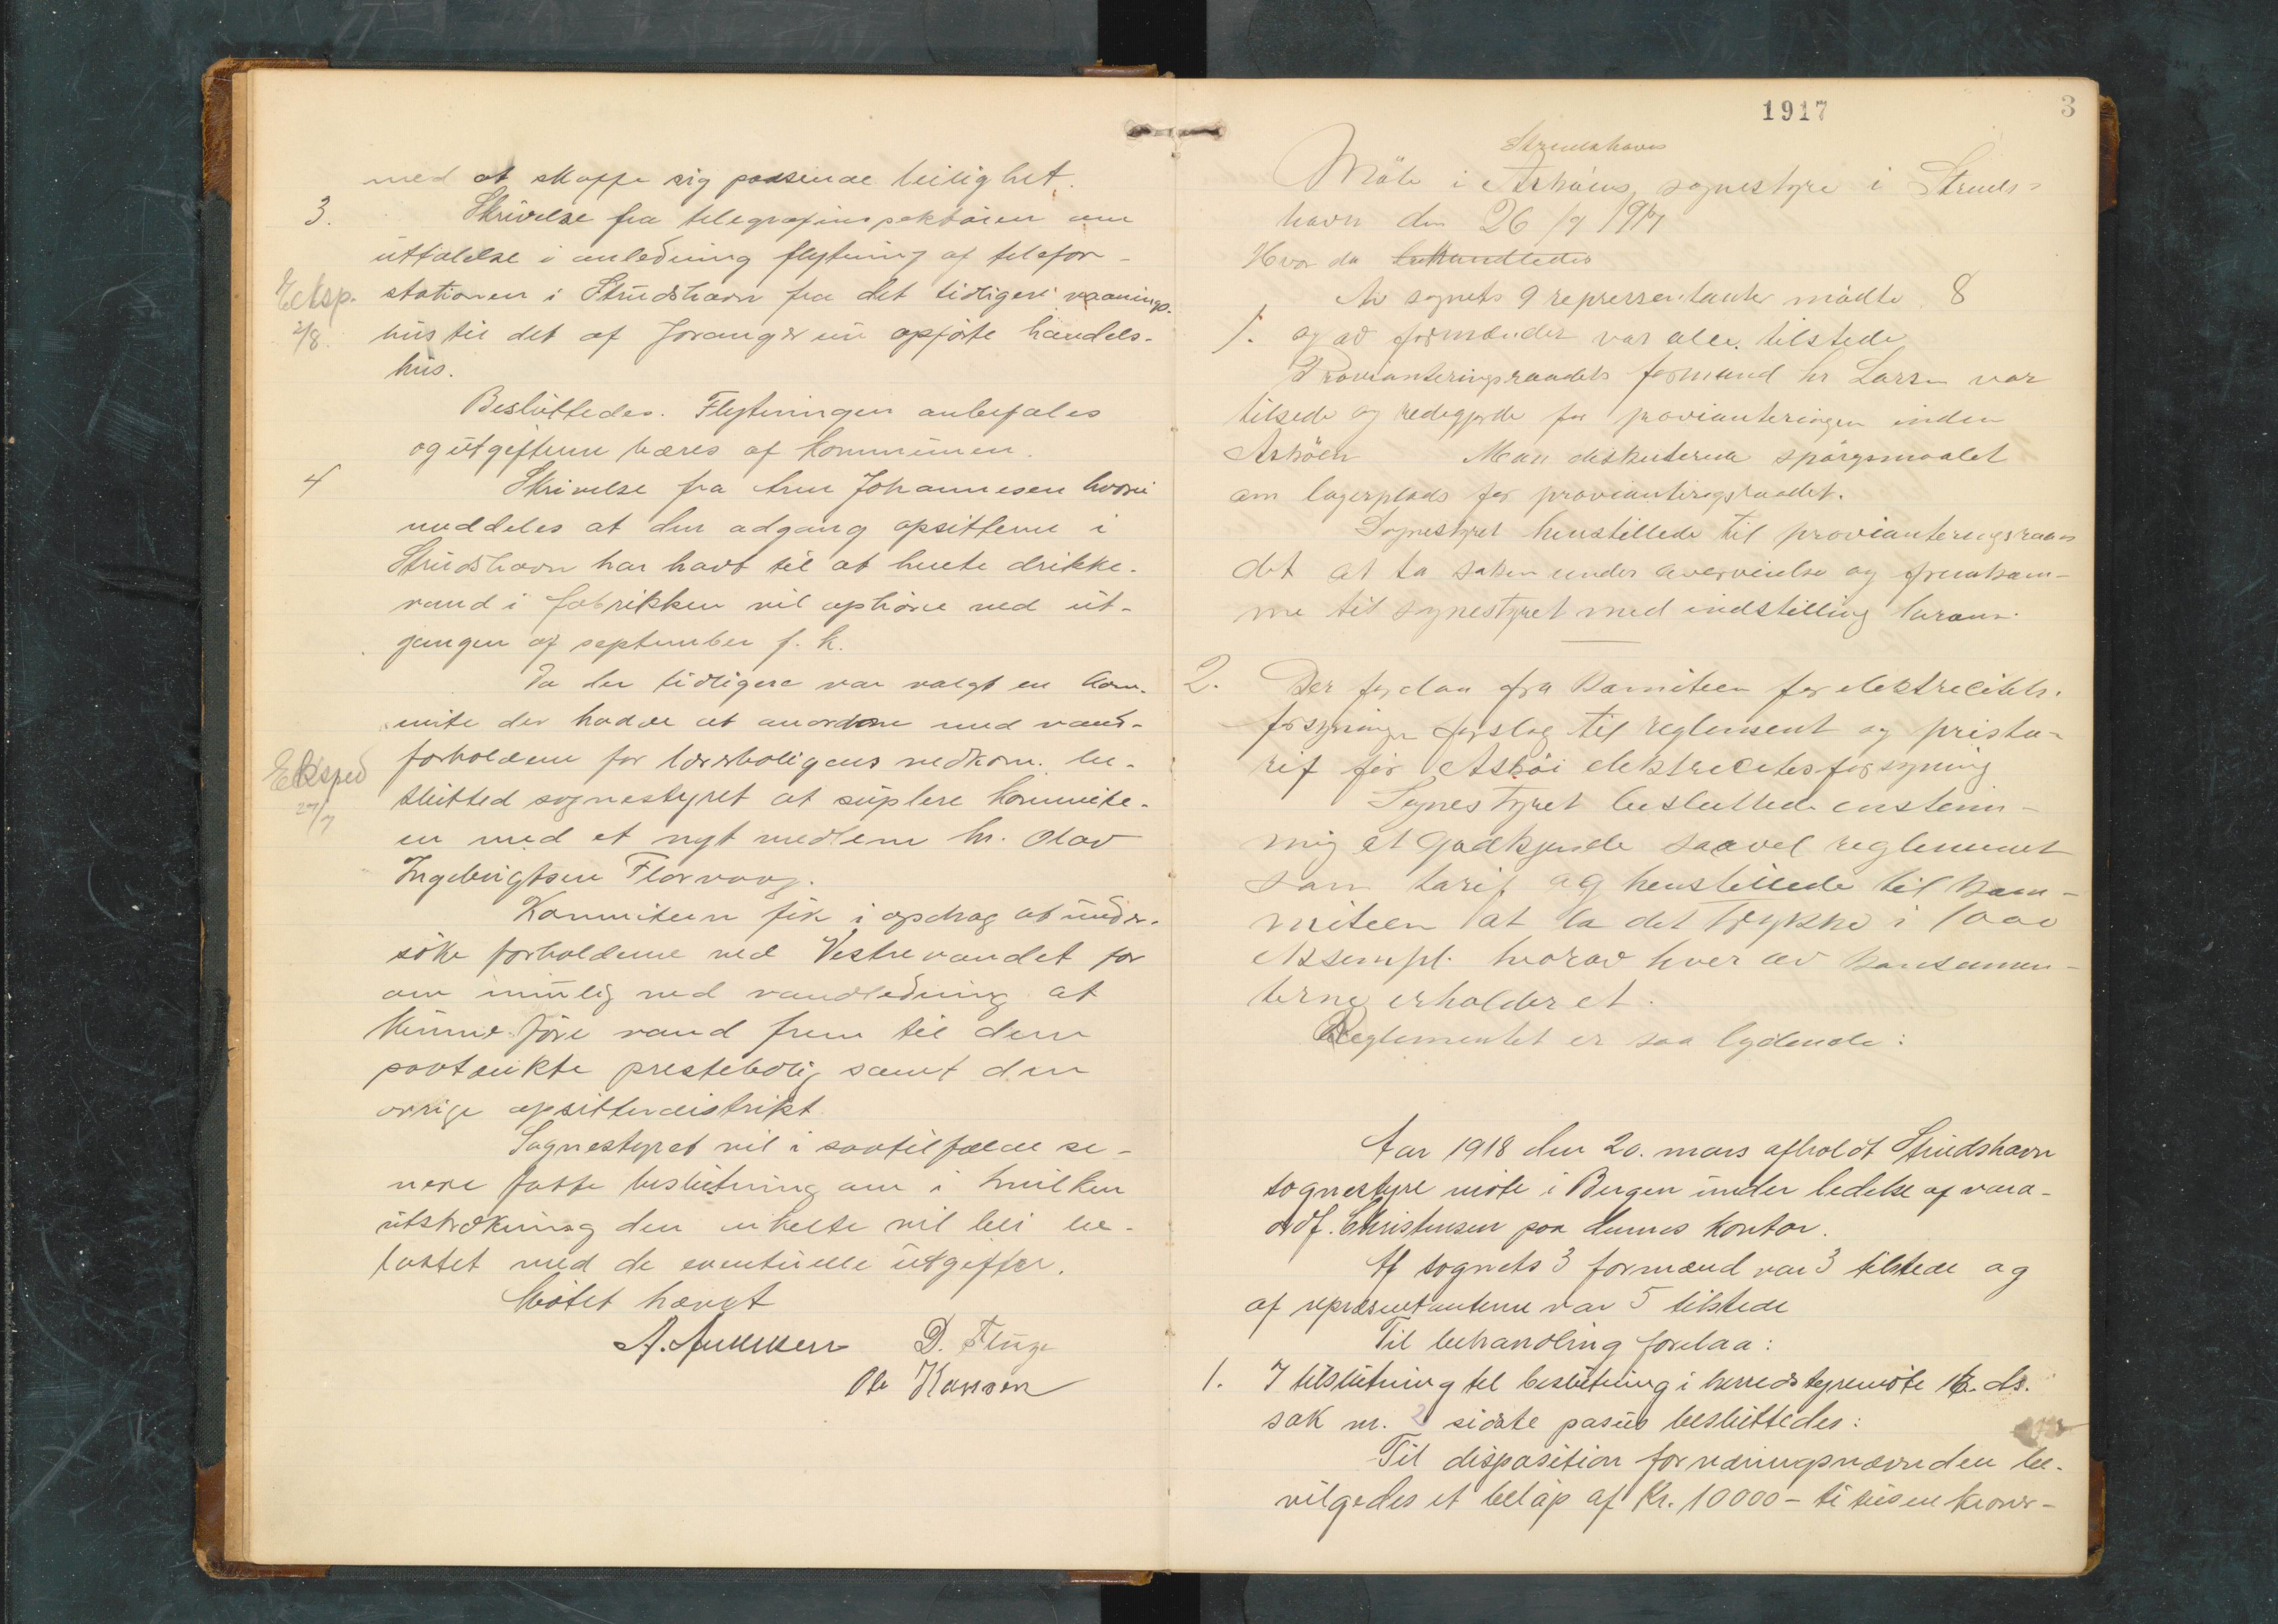 med at skaffe sig passende leilighet.
3. Skrivelse fra telegrafinspektøren om
uttalelse i anledning flytning af telefon-
Eksp. stationen i Strudshavn fra det tidligere vaanings-
2/8. hus til det af Joranger nu opførte handels-
hus.
Besluttedes. Flytningen anbefales
og utgifterne bæres af kommunen.
4 Skrivelse fra Arne Johannesen hvori
meddeles at den adgang opsitterne i
Strudshavn har havt til at hente drikke-
vand i fabrikken vil ophøre ved ut-
gangen af september f. k.
Da der tidligere var valgt en kom-
mite der hadde at anordne med vand-
forholdene for lærerboligens vedkom. be-
Eksped slutted sognestyret at suplere kommite-
27/7 en med et nyt medlem hr. Olav
Ingebrigtsen Florvaag.
Kommiteen fik i opdrag at under-
søke forholdene ved Vestrevandet for
om mulig ved vandledning at
kunne føre vand frem til den
paatænkte prestebolig samt den
øvrige opsitterdistrikt.
Sognestyret vil i saatilfælde se-
nere fatte beslutning om i hvilken
utstrækning den enkelte vil bli be-
lastet med de eventuelle utgifter.
Møtet hævet
A. Andersen D. Fluge
Ole Hansen
1917 3
Strudshavns
Möte i Asköens sognestyre i Struds-
havn den 26/9 1917
Hvor da behandledes
Av sognets 9 repressentanter mödte 8
1. og av formænder var alle tilstede
Provianteringsraadets formand hr Larsen var
tilsede og redegjorde for provianteringen inden
Asköen Man diskuterte spörgsmaalet
om lagerplads for provianteringsraadet.
Sognestyret henstillede til provianteringsraa-
det at ta saken under overveielse og fremkom-
me til sognestyret med indstilling herom.
2. Der forelaa fra komiteen for elektricitets-
forsyninge forslag til reglement og prista-
rif for Asköi elektricitetsforsyning
Sognestyret besluttede enstem-
mig at godkjende saavel reglement
som tarif og henstillede til kom-
miteen at la det trykke i 1000
eksempl. hvorav hver av konsumen-
terne erholder et.
Reglementet er saa lydende:
Aar 1918 den 20. mars afholdt Strudshavn
sognestyre møte i Bergen under ledelse af vara-
ordf. Christensen paa dennes kontor.
Af sognets 3 formænd var 3 tilstede og
af repræsentanterne var 5 tilstede
Til behandling forelaa:
1. I tilslutning til beslutning i herredstyremøte ds.
sak nr. 2 sidste pasus besluttedes:
Til disposition for næringsnævnden be-
vilgedes et beløp af Kr. 10000 - ti tusen kroner -